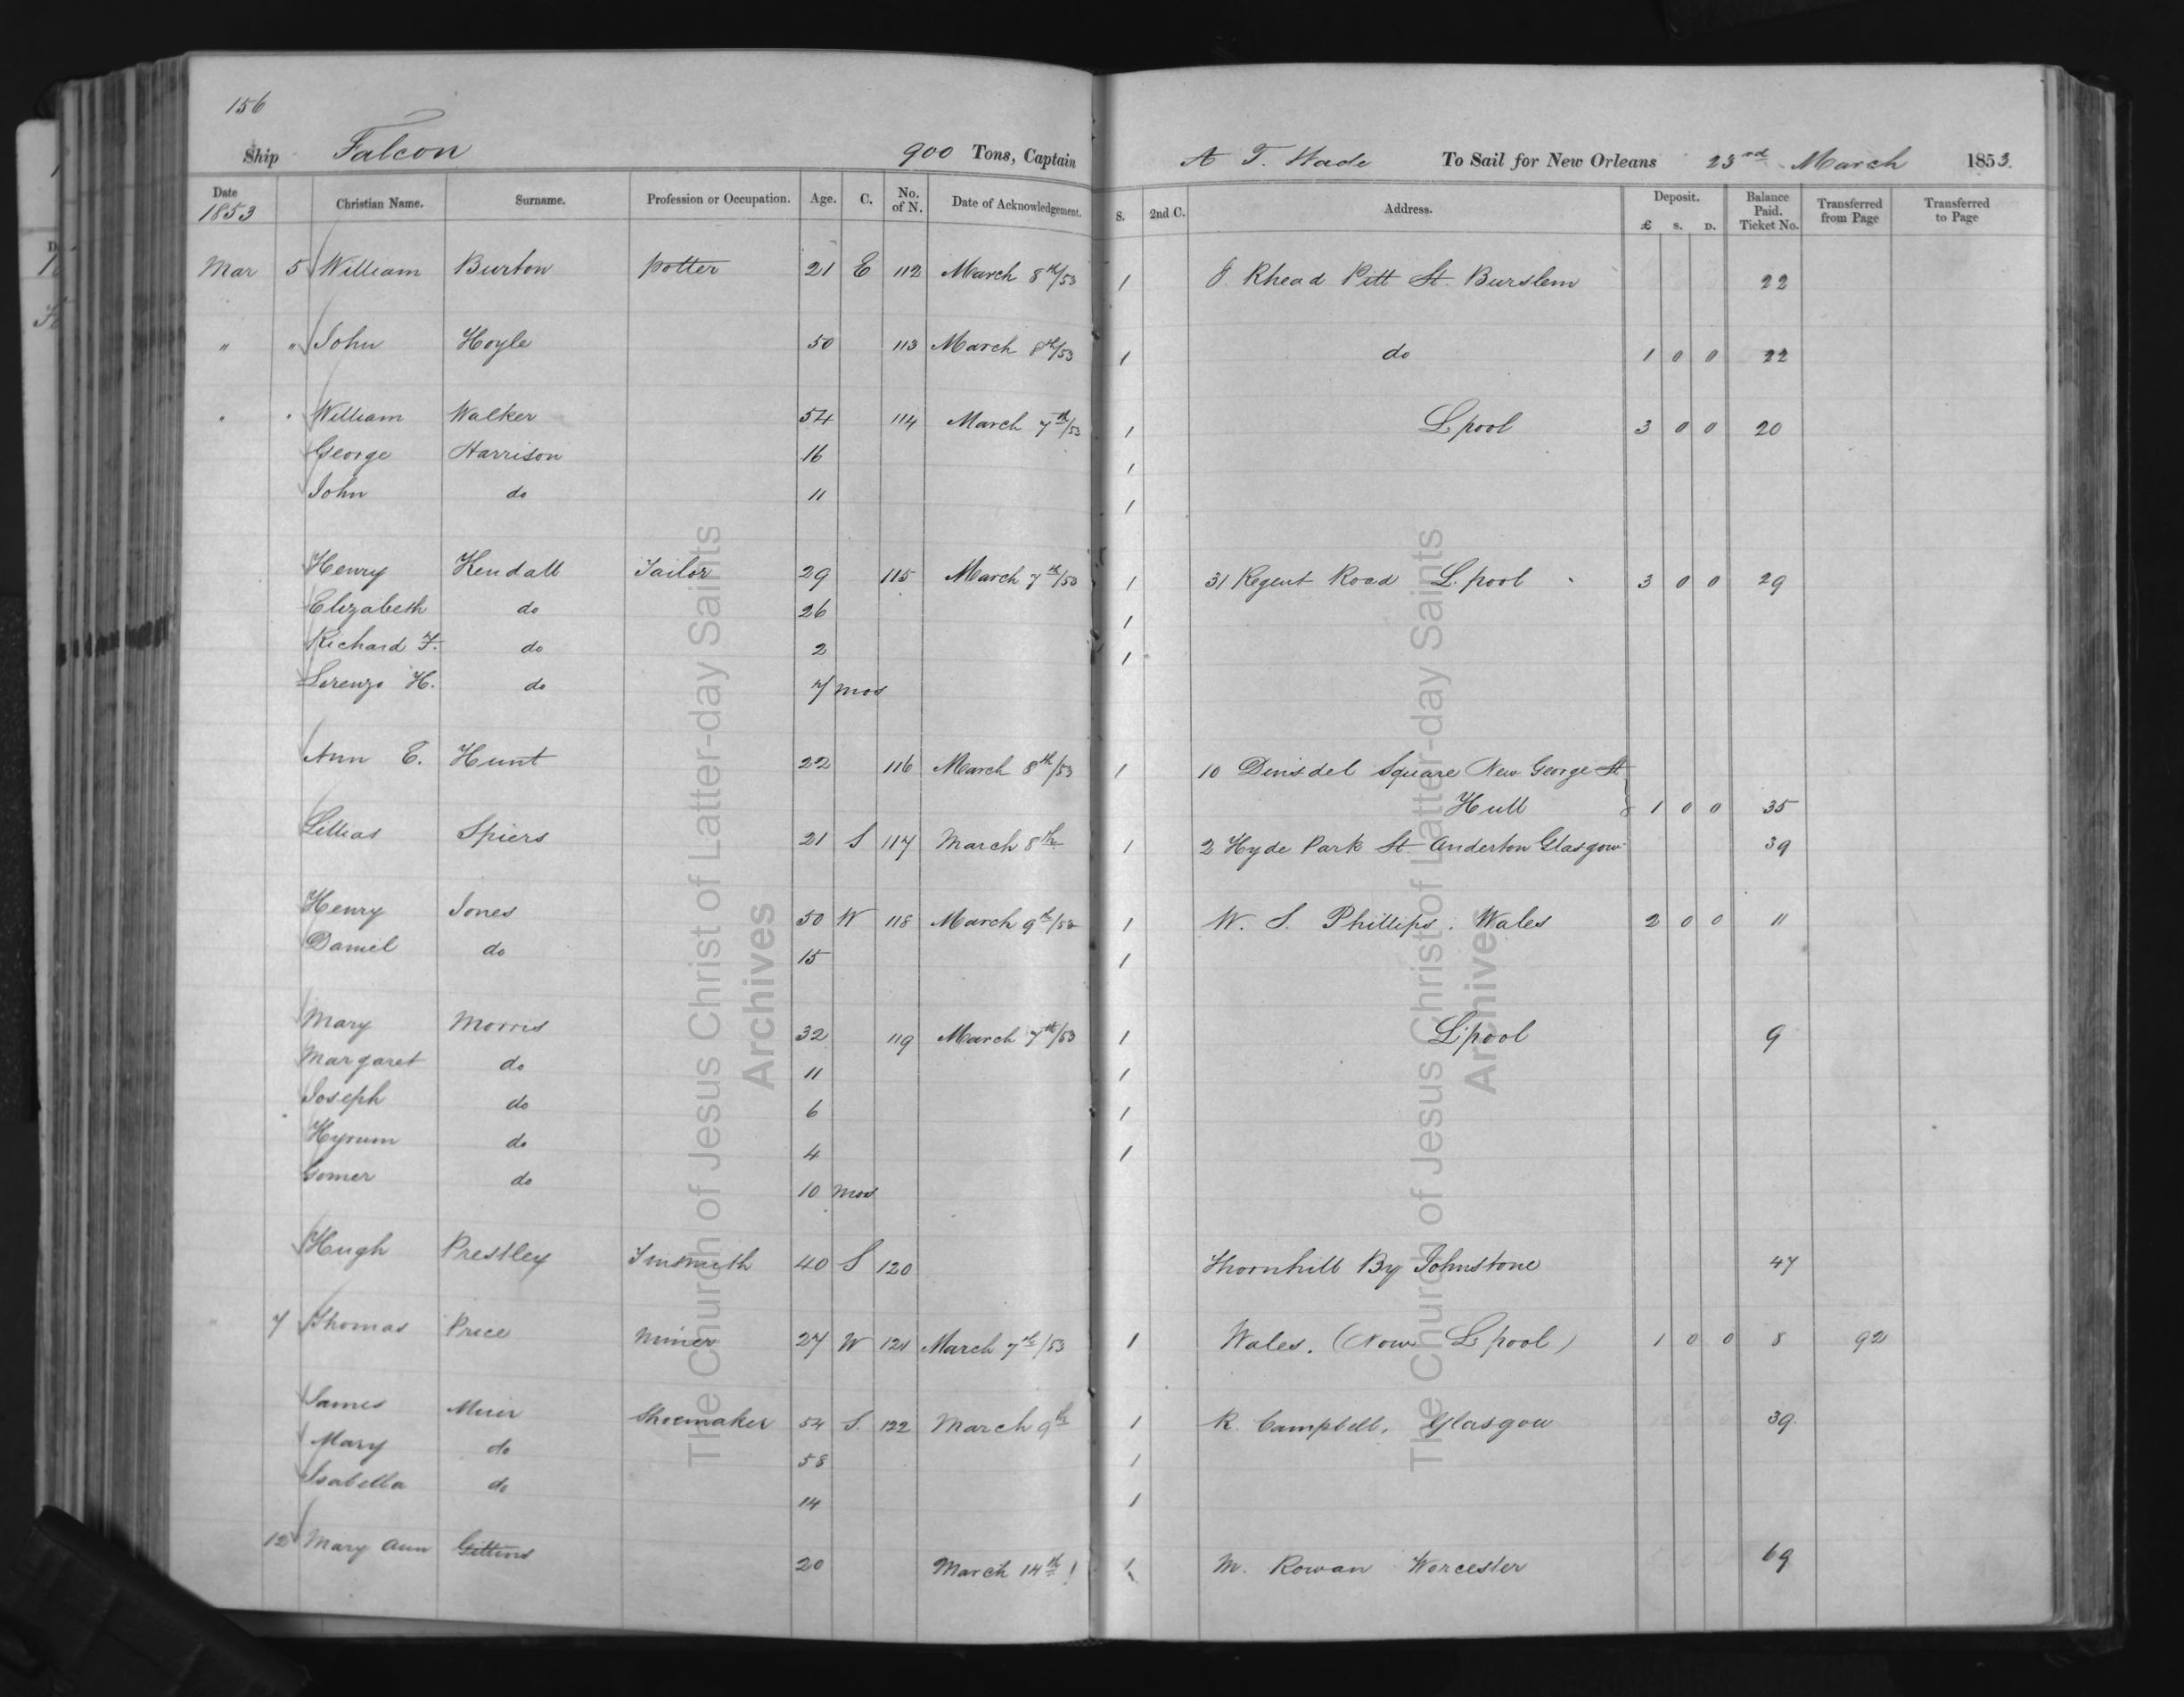 156
Ship Falcon 900 Tons, Captain A T. Wade To Sail for New Orleans 23rd March 1853.
Date 1853 Christian Name. Surname. Profession or Occupation. Age. C. No. of N. Date of Acknowledgement. S. 2nd C. Address. Deposit. £ S. D. Balance Paid. Ticket No. Transferred from Page Transferred to Page
Mar 5 William Burton potter 21 E 112 March 8th/53 1 J. Rhead Pitt St. Burslem 22
" " John Hoyle 50 113 March 8th/53 1 do 1 0 0 22
" " William Walker 54 114 March 7th/53 1 L.pool 3 0 0 20
George Harrison 16 1
John do 11 1
Henry Kendall Tailor 29 115 March 7th/53 1 31 Regent Road L.pool 3 0 0 29
Elizabeth do 26 1
Richard F. do 2 1
Lorenzo H. do 7 mos
Ann E. Hunt 22 116 March 8th/53 1 10 Dinsdel Square New George St
Hull 1 0 0 35
Lillias Spiers 21 S 117 March 8th 1 2 Hyde Park St Anderton Glasgow 39
Henry Jones 50 W 118 March 9th/53 1 W. S. Phillips. Wales 2 0 0 11
Daniel do 15 1
Mary Morris 32 119 March 7th/53 1 L'pool 9
Margaret do 11 1
Joseph do 6 1
Hyrum do 4 1
Gomer do 10 mos
Hugh Prestley Tinsmith 40 S 120 Thornhill By Johnstone 47
" 7 Thomas Price Miner 27 W 121 March 7th/53 1 Wales. (Now L.pool) 1 0 0 8 92
James Muir Shoemaker 54 S. 122 March 9th 1 R. Campbell, Glasgow 39.
Mary do 58 1
Isabella do 14 1
12 Mary Ann Gittins 20 March 14th ! 1 M. Rowan Worcester 69
The Church of Jesus Christ of Latter-day Saints
Archives
The Church of Jesus Christ of Latter-day Saints
Archives